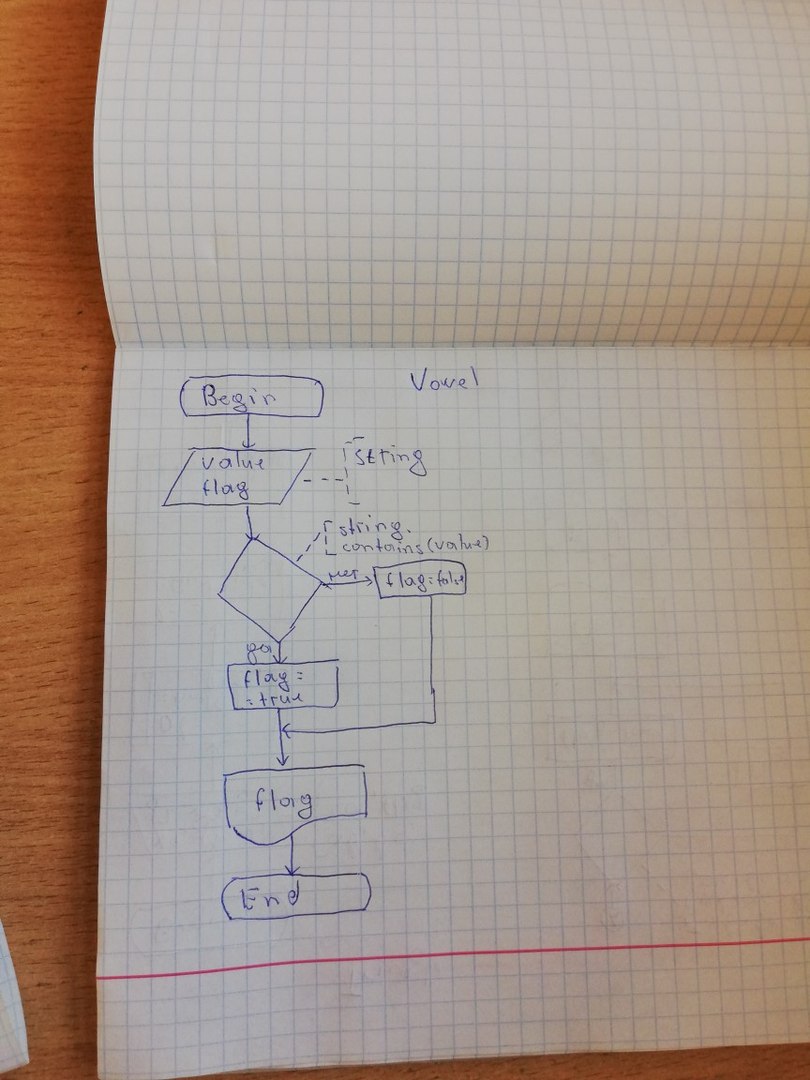 Begin
Vowel
value
flag
string
string.
contains(value)
нет
flag=false
да
flag=
=true
flag
End